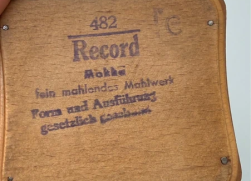 482
C
Record
Mokka
fein mahlendes Mahlwerk
Form und Ausführung
gesetzlich geschützt